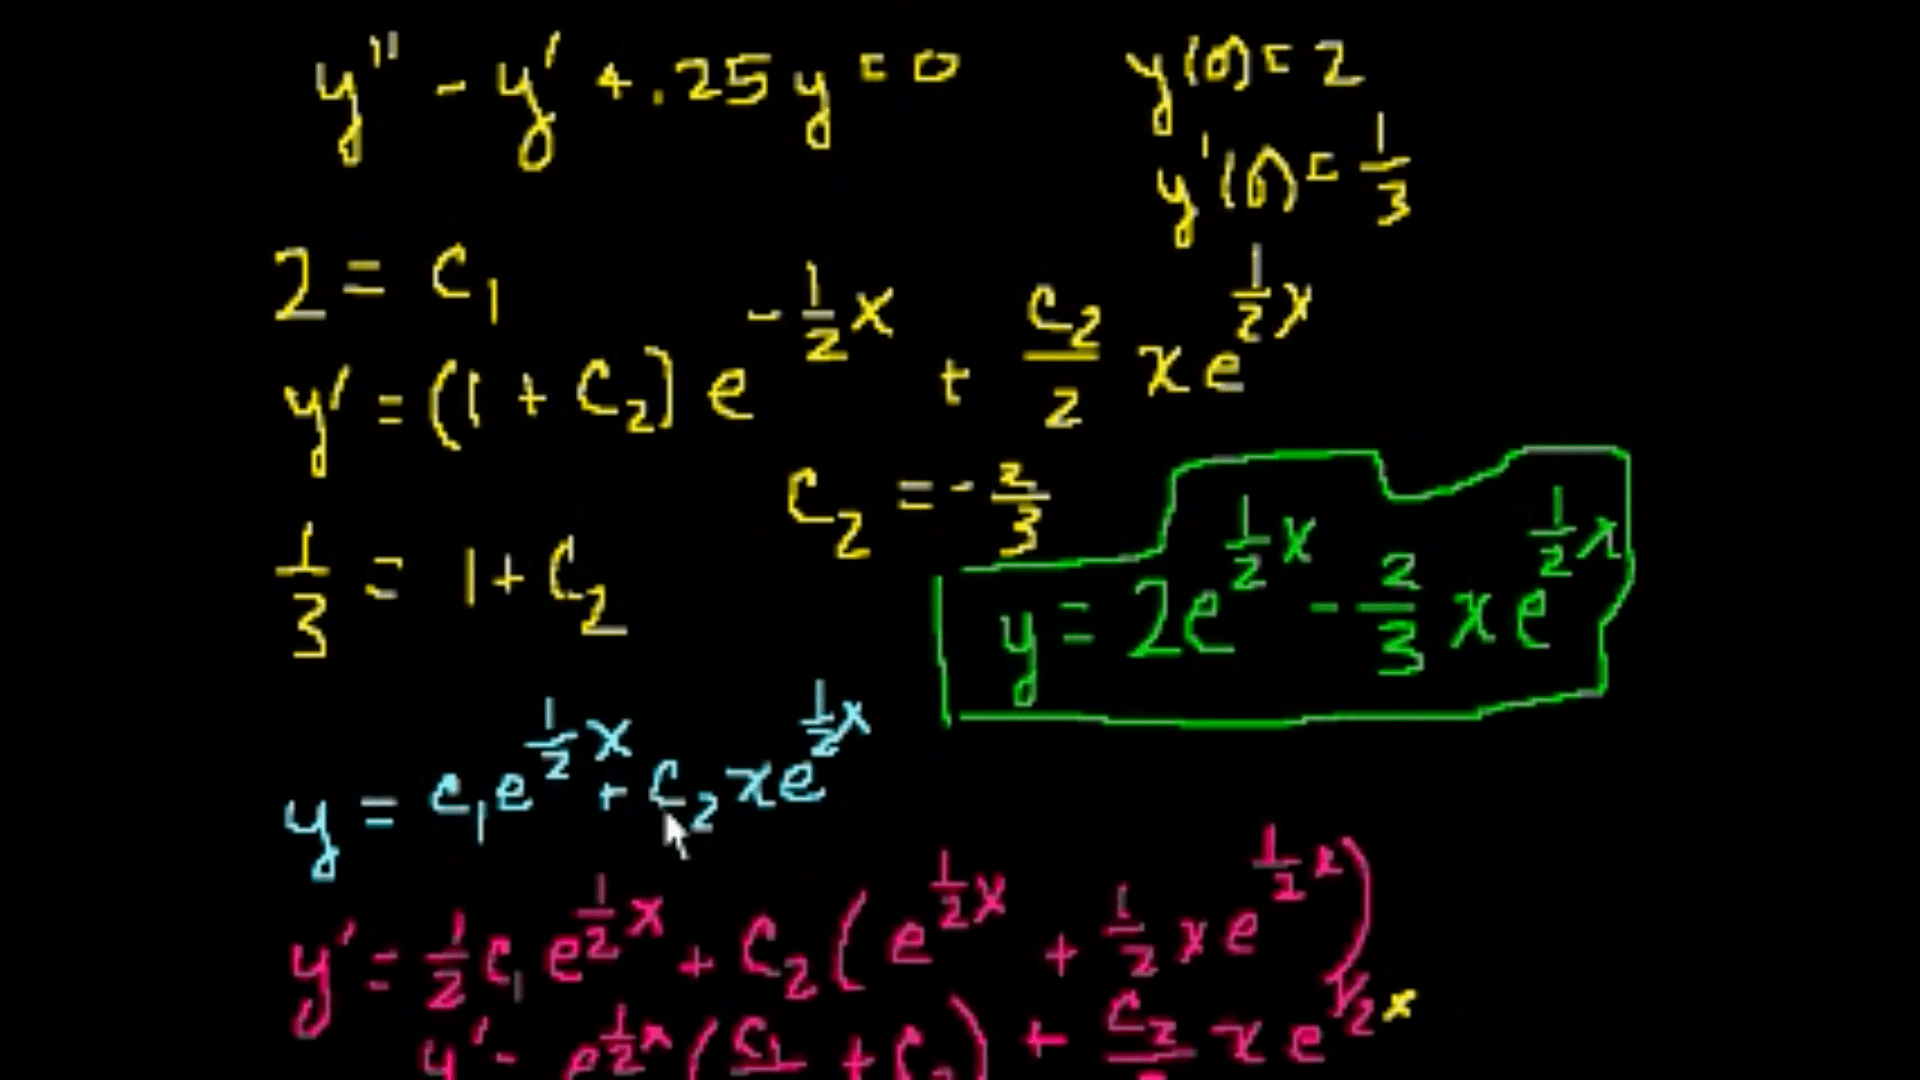 y'' - y' + .25 y = 0
y(0) = 2
y'(0) = 1/3
2 = c₁
y' = (1 + c₂) e^(-1/2 x) + c₂/2 x e^(1/2 x)
c₂ = -2/3
1/3 = 1 + c₂
y = 2e^(1/2 x) - 2/3 x e^(1/2 x)
y = c₁e^(1/2 x) + c₂ x e^(1/2 x)
y' = 1/2 c₁ e^(1/2 x) + c₂ (e^(1/2 x) + 1/2 x e^(1/2 x))
y' - e^(1/2 x) (c₁ + c₂) + c₂ x e^(1/2 x)